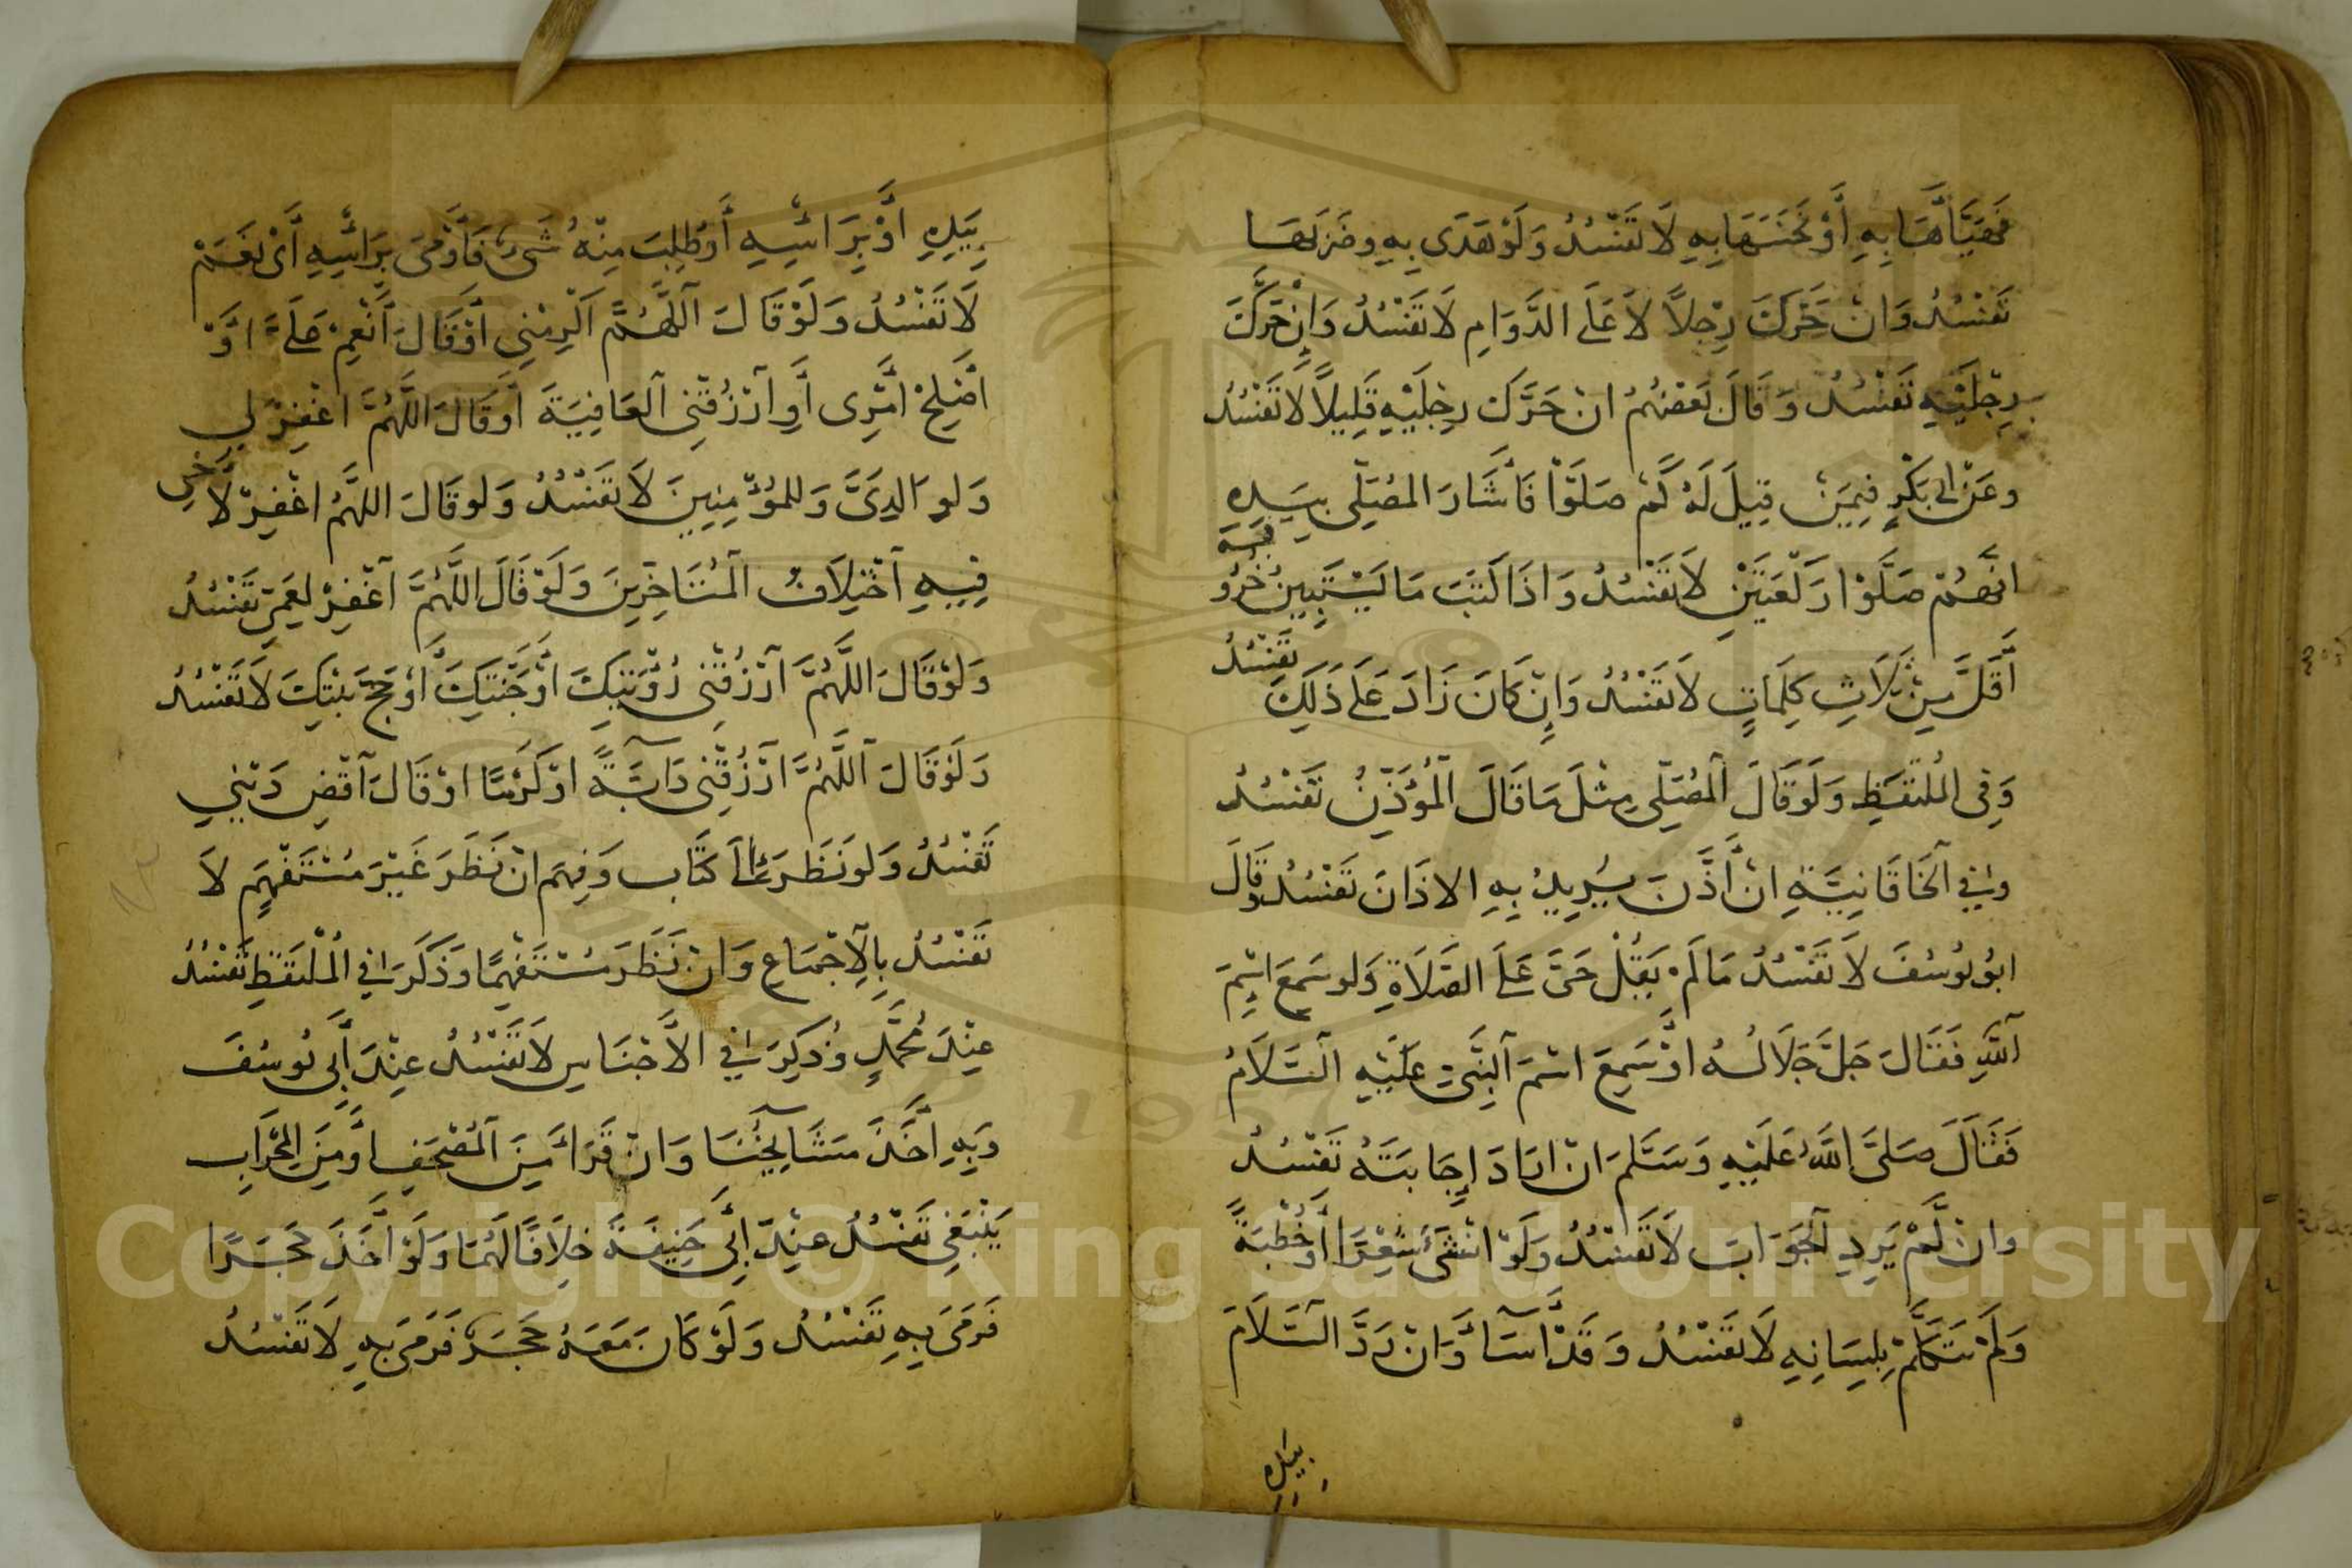 فَهَيَّأَهَا بِهِ أَوْ نَخَسَهَا بِهِ لَا تَفْسُدُ وَلَوْ هَدَى بِهِ وضَرَبَهَا
تَفْسُدُ وَانْ حَرَّكَ رِجْلاً لَا عَلَى الدَّوَامِ لَا تَفْسُدُ وَاِنْ حَرَّكَ
رِجْلَيْهِ تَفْسُدُ وَقَالَ بَعْضُهُمْ انْ حَرَّكَ رِجْلَيْهِ قَلِيلاً لَا تَفْسُدُ
وعَنْ ابى بَكْرٍ فِيمَنْ قِيلَ لَهُ كَمْ صَلَّوْا فَأَشَارَ المُصَلِّى بِيَدِهِ
انَّهُمْ صَلَّوْا رَكْعَتَيْنِ لَا تَفْسُدُ وَاذَا كَتَبَ مَا يَسْتَبِينُ حُرُوفُهُ
أَقَلَّ مِنْ ثَلَاثِ كَلِمَاتٍ لَا تَفْسُدُ وَاِنْ كَانَ زَادَ عَلَى ذَلِكَ تَفْسُدُ
وَفِى الْمُلْتَقَطِ وَلَوْ قَالَ الْمُصَلِّى مِثْلَ مَا قَالَ الْمُؤَذِّنُ تَفْسُدُ
وفي الْخَاقَانِيَّةِ انْ أَذَّنَ يُرِيدُ بِهِ الاذَانَ تَفْسُدُ وقَالَ
ابُو يُوسُفَ لَا تَفْسُدُ مَا لَمْ يَقُلْ حَىَّ عَلَى الصَّلَاةِ وَلو سَمِعَ اسْمَ
اللَّهِ فَقَالَ جَلَّ جَلَالُهُ اوْ سَمِعَ اسْمَ النَّبِىِّ عَلَيْهِ السَّلَامُ
فَقَالَ صَلَّى اللَّهُ عَلَيْهِ وَسَلَّمَ انْ ارَادَ اِجَابَتَهُ تَفْسُدُ
وانْ لَمْ يَرِدِ الْجَوَابَ لَا تَفْسُدُ وَلَوْ انْشَئَ شِعْرًا أَوْ خُطْبَةً
وَلَمْ يَتَكَلَّمْ بِلِسَانِهِ لَا تَفْسُدُ وَقَدْ أَسَآءَ وَانْ رَدَّ السَّلَامَ
بِيَدِهِ
بِيَدِهِ اوْ بِرَاسِهِ أَوْ طُلِبَ مِنْهُ شَىْءٌ فَأَوْمَى بِرَاسِهِ أَىْ نَعَمْ
لَا تَفْسُدُ وَلَوْ قَالَ اللَّهُمَّ اَكْرِمْنِى اوْ قَالَ أَنْعِمْ عَلَىَّ اوْ
اصْلِحْ امْرِى أَوِ ارْزُقْنِى الْعَافِيَةَ اوْ قَالَ اللَّهُمَّ اغْفِرْ لِي
وَلِوَالِدَىَّ وَللمُؤْمِنِينَ لَا تَفْسُدُ وَلو قَالَ اللهُمَّ اغْفِرْ لاَخِى
فِيهِ اخْتِلَافُ الْمُتَاخِرِينَ وَلَوْ قَالَ اللَّهُمَّ اغْفِرْ لِعَمِّى تَفْسُدُ
وَلَوْ قَالَ اللَّهُمَّ ارْزُقْنِى رُؤْيَتِكَ اوْ جَنَّتِكَ أَوْ حَجَّ بَيْتِكَ لَا تَفْسُدُ
وَلَوْ قَالَ اللَّهُمَّ ارْزُقْنِى دَآبَّةً اوْ كَرْمًا اوْ قَالَ اقْضِ دَيْنِي
تَفْسُدُ وَلو نَظَرَ الى كِتَاب وَفِهَمَ انْ نَظَرَ غَيْرَ مُسْتَفْهِمٍ لَا
تَفْسُدُ بِالْاِجْمَاعِ وَانْ نَظَرَ مُسْتَفْهِمًا وَذَكَرَ فِي الْمُلْتَقَطِ تَفْسُدُ
عِنْدَ مُحَمَّدٍ وَذُكِرَ فِي الاَجْنَاسِ لَا تَفْسُدُ عِنْدَ أَبِى يُوسُفَ
وَبِهِ اَخَذَ مَشَايِخُنَا وَانْ قَرَاءَ مِنَ الْمُصْحَفِ اوْ مِنَ الْمِحْرَابِ
يَنْبَغِى تَفْسُدُ عِنْدَ اَبِى حَنِيفَةَ خِلَافًا لَهُمَا وَلَوْ أَخَذَ حَجَرًا
فَرَمَى بِهِ تَفْسُدُ وَلَوْ كَانَ مَعَهُ حَجَرٌ فَرَمَى بِهِ لَا تَفْسُدُ
Copyright © King Saud University
1957